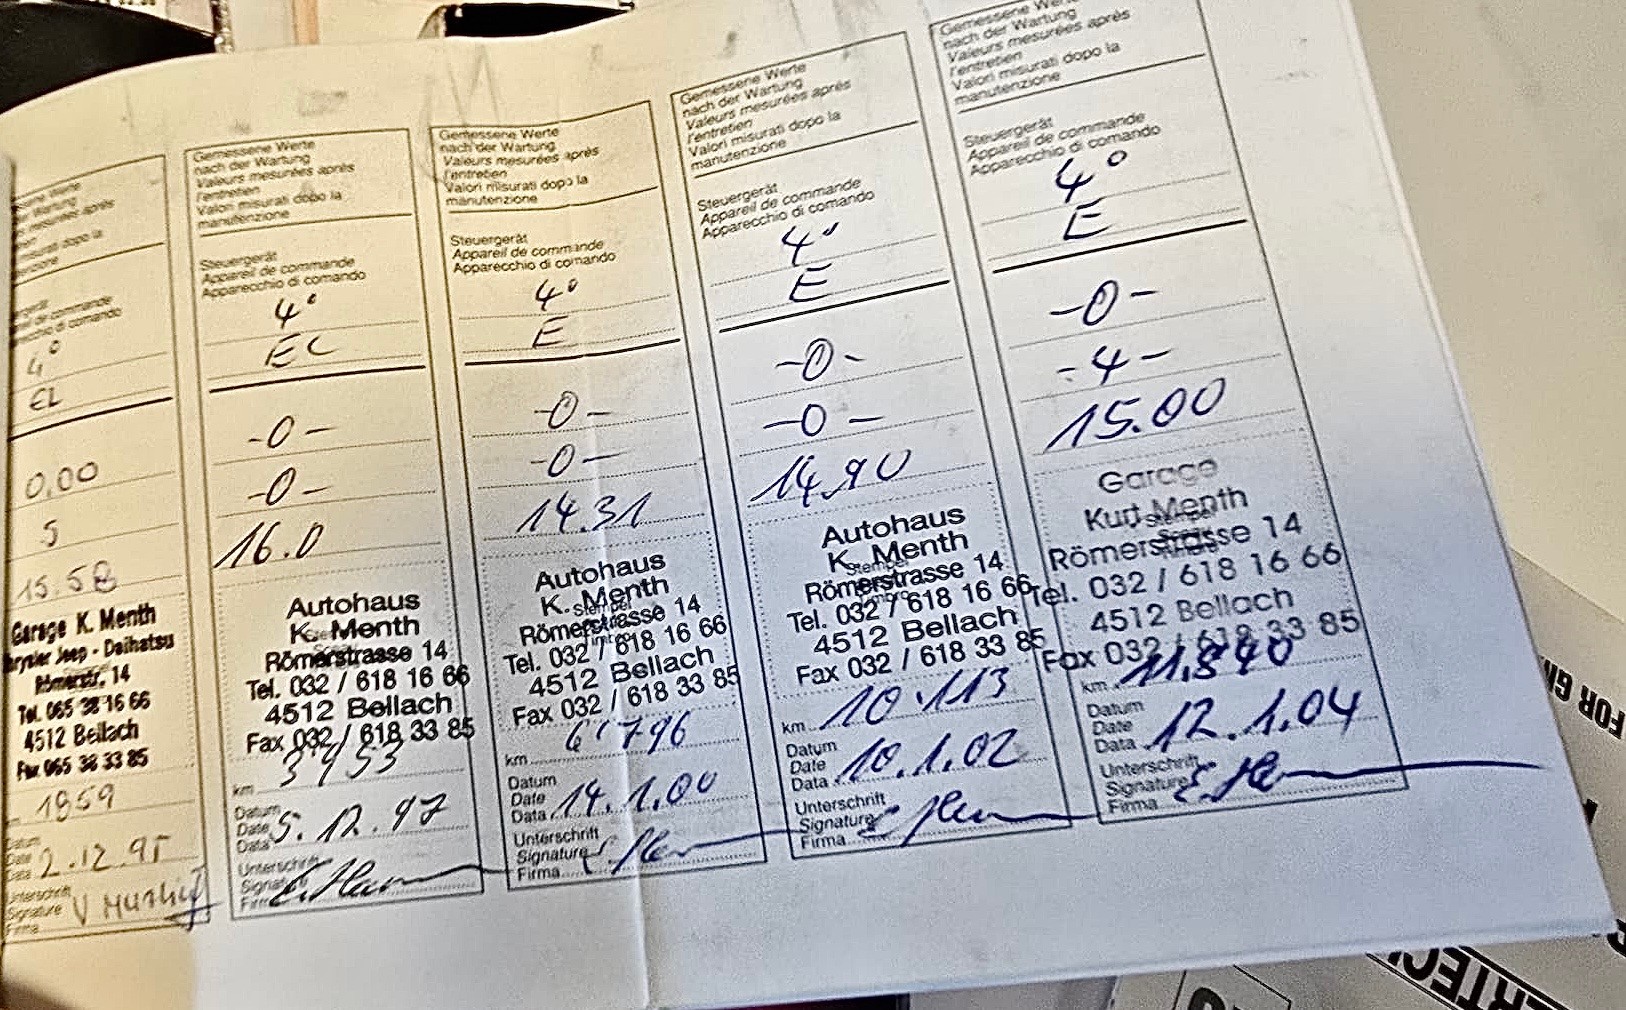 erne Werte
er Wartung
s mesurées après
en
isurati dopo la
nzione
gerät
eil de commande
cchio di comando
4°
EL
0,00
5
15.58
Garage K. Menth
hrysler Jeep - Daihatsu
Römerstr. 14
Tel. 065 38 16 66
4512 Bellach
Fax 065 38 33 85
1959
Datum
Date
Data 2.12.95
Unterschrift
Signature
Firma
Gemessene Werte
nach der Wartung
Valeurs mesurées après
l'entretien
Valori misurati dopo la
manutenzione
Steuergerät
Appareil de commande
Apparecchio di comando
4°
EL
-0-
-0-
16.0
Autohaus
K. Menth
Römerstrasse 14
Tel. 032 / 618 16 66
4512 Bellach
Fax 032 / 618 33 85
km 3953
Datum
Date
Data 5.12.97
Unterschrift
Signature
Firma
Gemessene Werte
nach der Wartung
Valeurs mesurées après
l'entretien
Valori misurati dopo la
manutenzione
Steuergerät
Appareil de commande
Apparecchio di comando
4°
E
-0-
-0-
14.31
Autohaus
K. Menth
Stempel
Römerstrasse 14
Timbro
Tel. 032 / 618 16 66
4512 Bellach
Fax 032 / 618 33 85
km 6'796
Datum
Date
Data 14.1.00
Unterschrift
Signature
Firma
Gemessene Werte
nach der Wartung
Valeurs mesurées après
l'entretien
Valori misurati dopo la
manutenzione
Steuergerät
Appareil de commande
Apparecchio di comando
4°
E
-0-
-0-
14.90
Autohaus
K. Menth
Stempel
Römerstrasse 14
Timbro
Tel. 032 / 618 16 66
4512 Bellach
Fax 032 / 618 33 85
km 10.113
Datum
Date
Data 10.1.02
Unterschrift
Signature
Firma
Gemessene Werte
nach der Wartung
Valeurs mesurées après
l'entretien
Valori misurati dopo la
manutenzione
Steuergerät
Appareil de commande
Apparecchio di comando
4°
E
-0-
-4-
15.00
Garage
Kurt Menth
Stempel
Römerstrasse 14
Tel. 032 / 618 16 66
4512 Bellach
Fax 032 / 618 33 85
km 11.840
Datum
Date
Data 12.1.04
Unterschrift
Signature
Firma
FOR